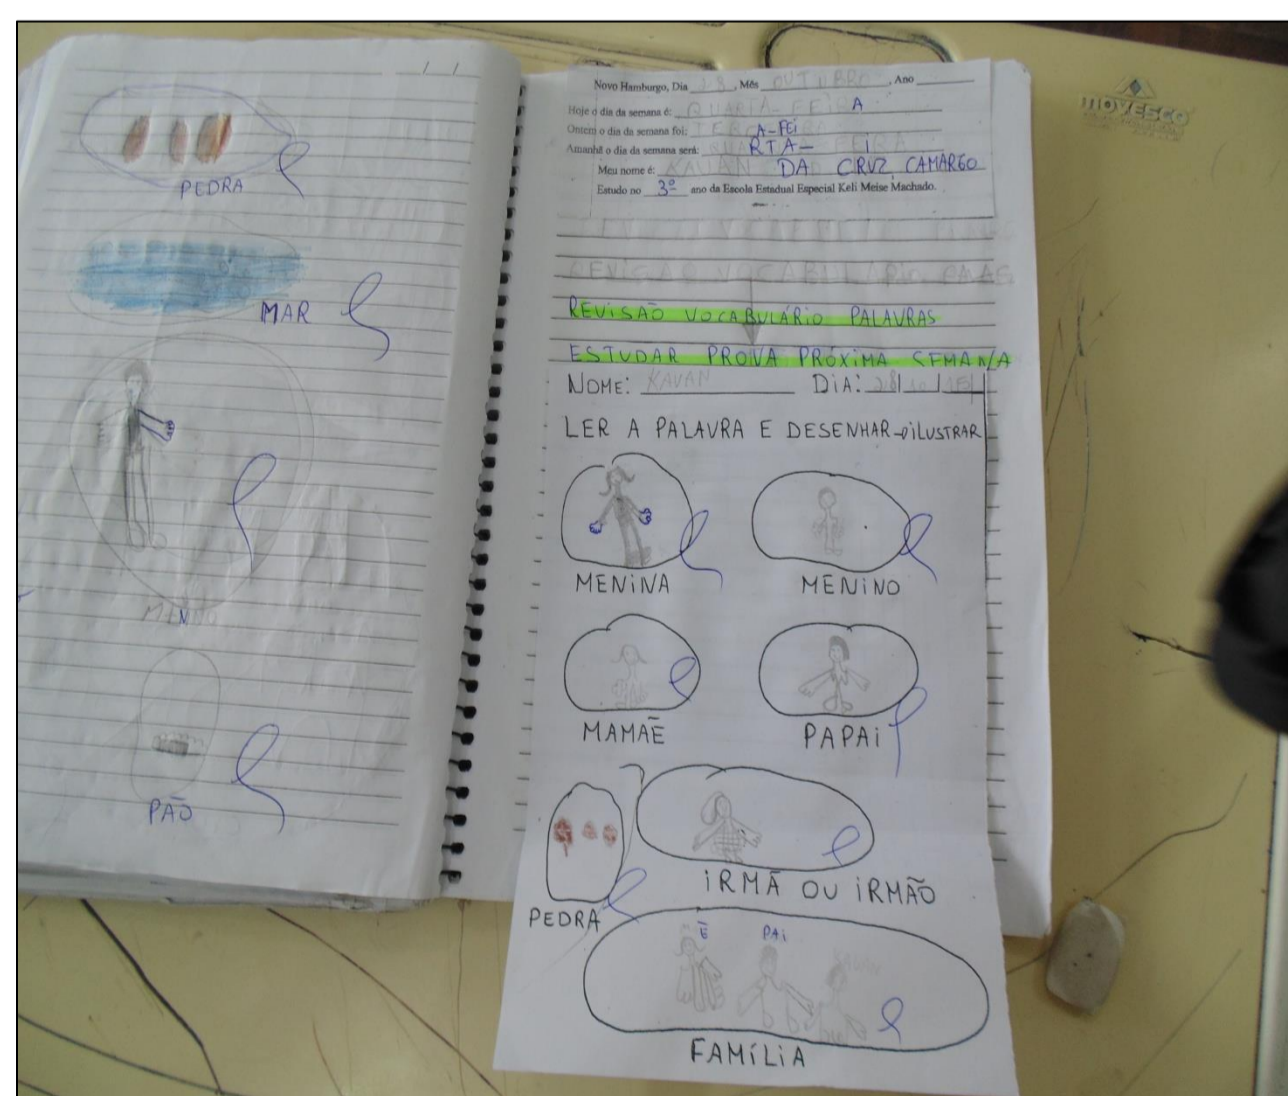 / /
PEDRA
MAR
MENINO
PÃO
Novo Hamburgo, Dia 28, Mês OUTUBRO, Ano
Hoje o dia da semana é: QUARTA-FEIRA
Ontem o dia da semana foi: TERÇA-FEIRA
Amanhã o dia da semana será:
Meu nome é: KAUAN DA CRUZ CAMARGO
Estudo no 3º ano da Escola Estadual Especial Keli Meise Machado.
REVISÃO VOCABULÁRIO PALAVRAS
REVISÃO VOCABULÁRIO PALAVRAS
ESTUDAR PROVA PRÓXIMA SEMANA
NOME: KAUAN DIA: 28/10/15
LER A PALAVRA E DESENHAR → ILUSTRAR
MENINA MENINO
MAMÃE PAPAI
IRMÃ OU IRMÃO
PEDRA
E PAI KAUAN
FAMÍLIA
MOVESCO